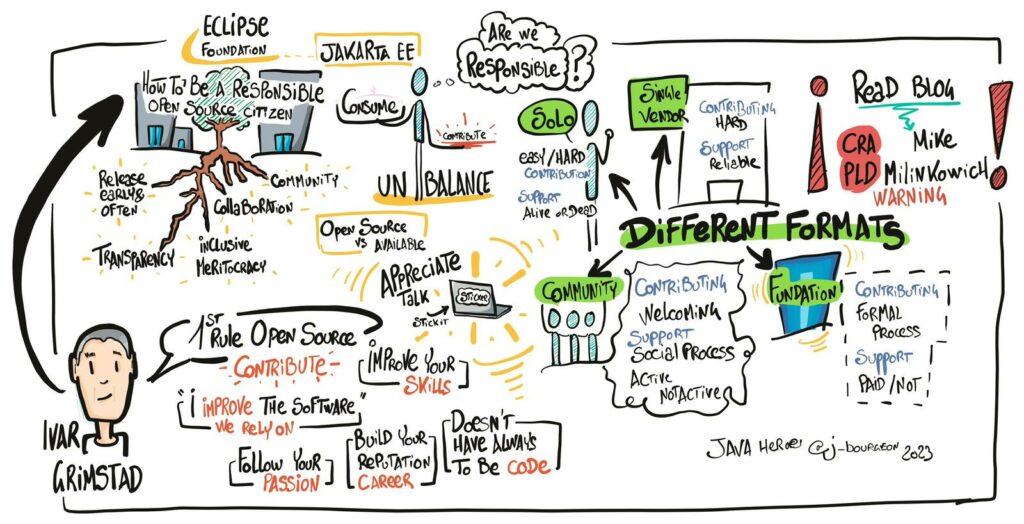 ECLIPSE
FOUNDATION
JAKARTA EE
How To Be A Responsible
OPEN SOURCE CITIZEN
Release
EARLY &
OFTEN
TRANSPARENCY
INCLUSIVE
MERITOCRACY
COLLABORATION
COMMUNITY
CONSUME
CONTRIBUTE
UN BALANCE
ARE WE
RESPONSIBLE?
OPEN SOURCE
VS AVAILABLE
APPRECIATE
TALK
STICKER
STICK IT
SOLO
EASY/HARD
CONTRIBUTION
SUPPORT
ALIVE OR DEAD
SINGLE
VENDOR
CONTRIBUTING
HARD
SUPPORT
Reliable
READ BLOG
MIKE
MILINKOWICH
CRA
PLD
WARNING
DIFFERENT FORMATS
COMMUNITY
CONTRIBUTING
WELCOMING
SUPPORT
SOCIAL PROCESS
ACTIVE
NOTACTIVE
FUNDATION
CONTRIBUTING
FORMAL
PROCESS
SUPPORT
PAID/NOT
IVAR
GRIMSTAD
1ST RULE OPEN SOURCE
CONTRIBUTE
"I IMPROVE THE SOFTWARE"
WE RELY ON
IMPROVE YOUR
SKILLS
FOLLOW YOUR
PASSION
BUILD YOUR
REPUTATION
CAREER
DOESN'T
HAVE ALWAYS
TO BE CODE
JAVA @j-bourgeon 2023